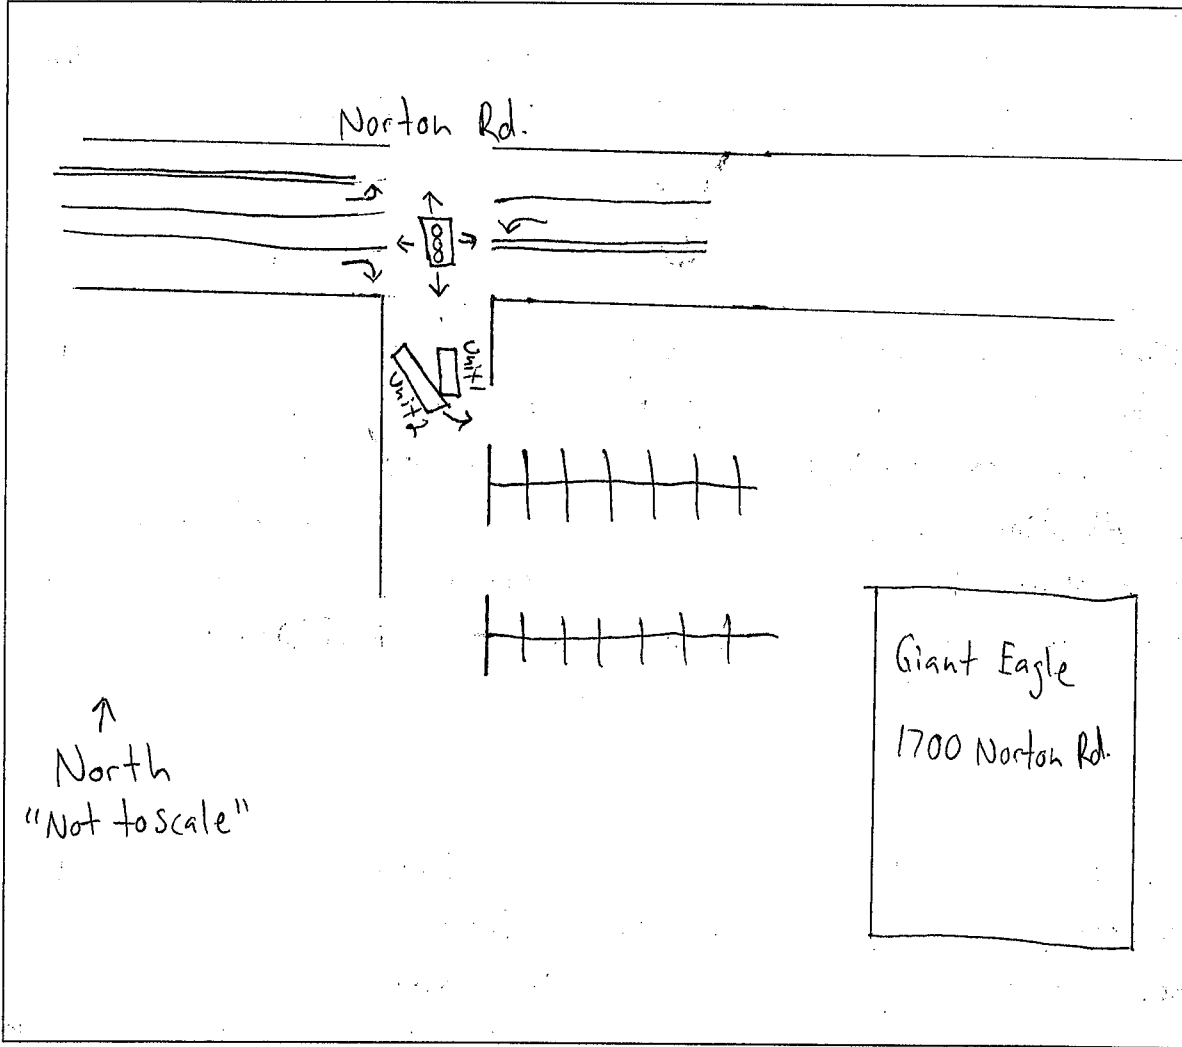 Norton Rd.
Unit 1
Unit 2
Giant Eagle
1700 Norton Rd.
North
"Not to scale"